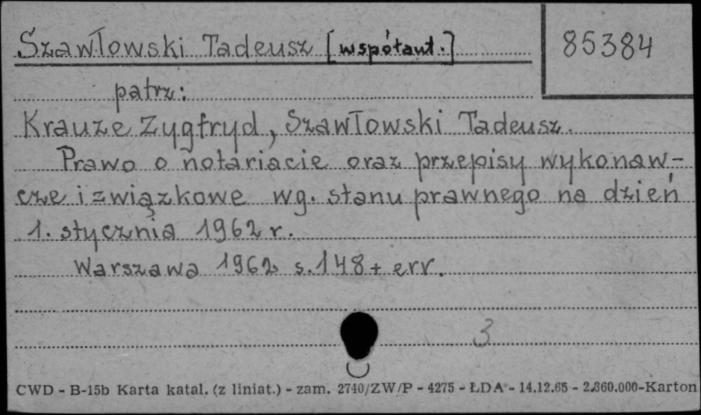 Szawłowski Tadeusz [współaut.]
85384
patrz:
Krauze Zygfryd, Szawłowski Tadeusz.
Prawo o notariacie oraz przepisy wykonaw-
cze i związkowe wg. stanu prawnego na dzień
1. stycznia 1962 r.
Warszawa 1962 s. 148 + err.
3
CWD - B-15b Karta katal. (z liniat.) - zam. 2740/ZW/P - 4275 - ŁDA - 14.12.65 - 2.860.000-Karton